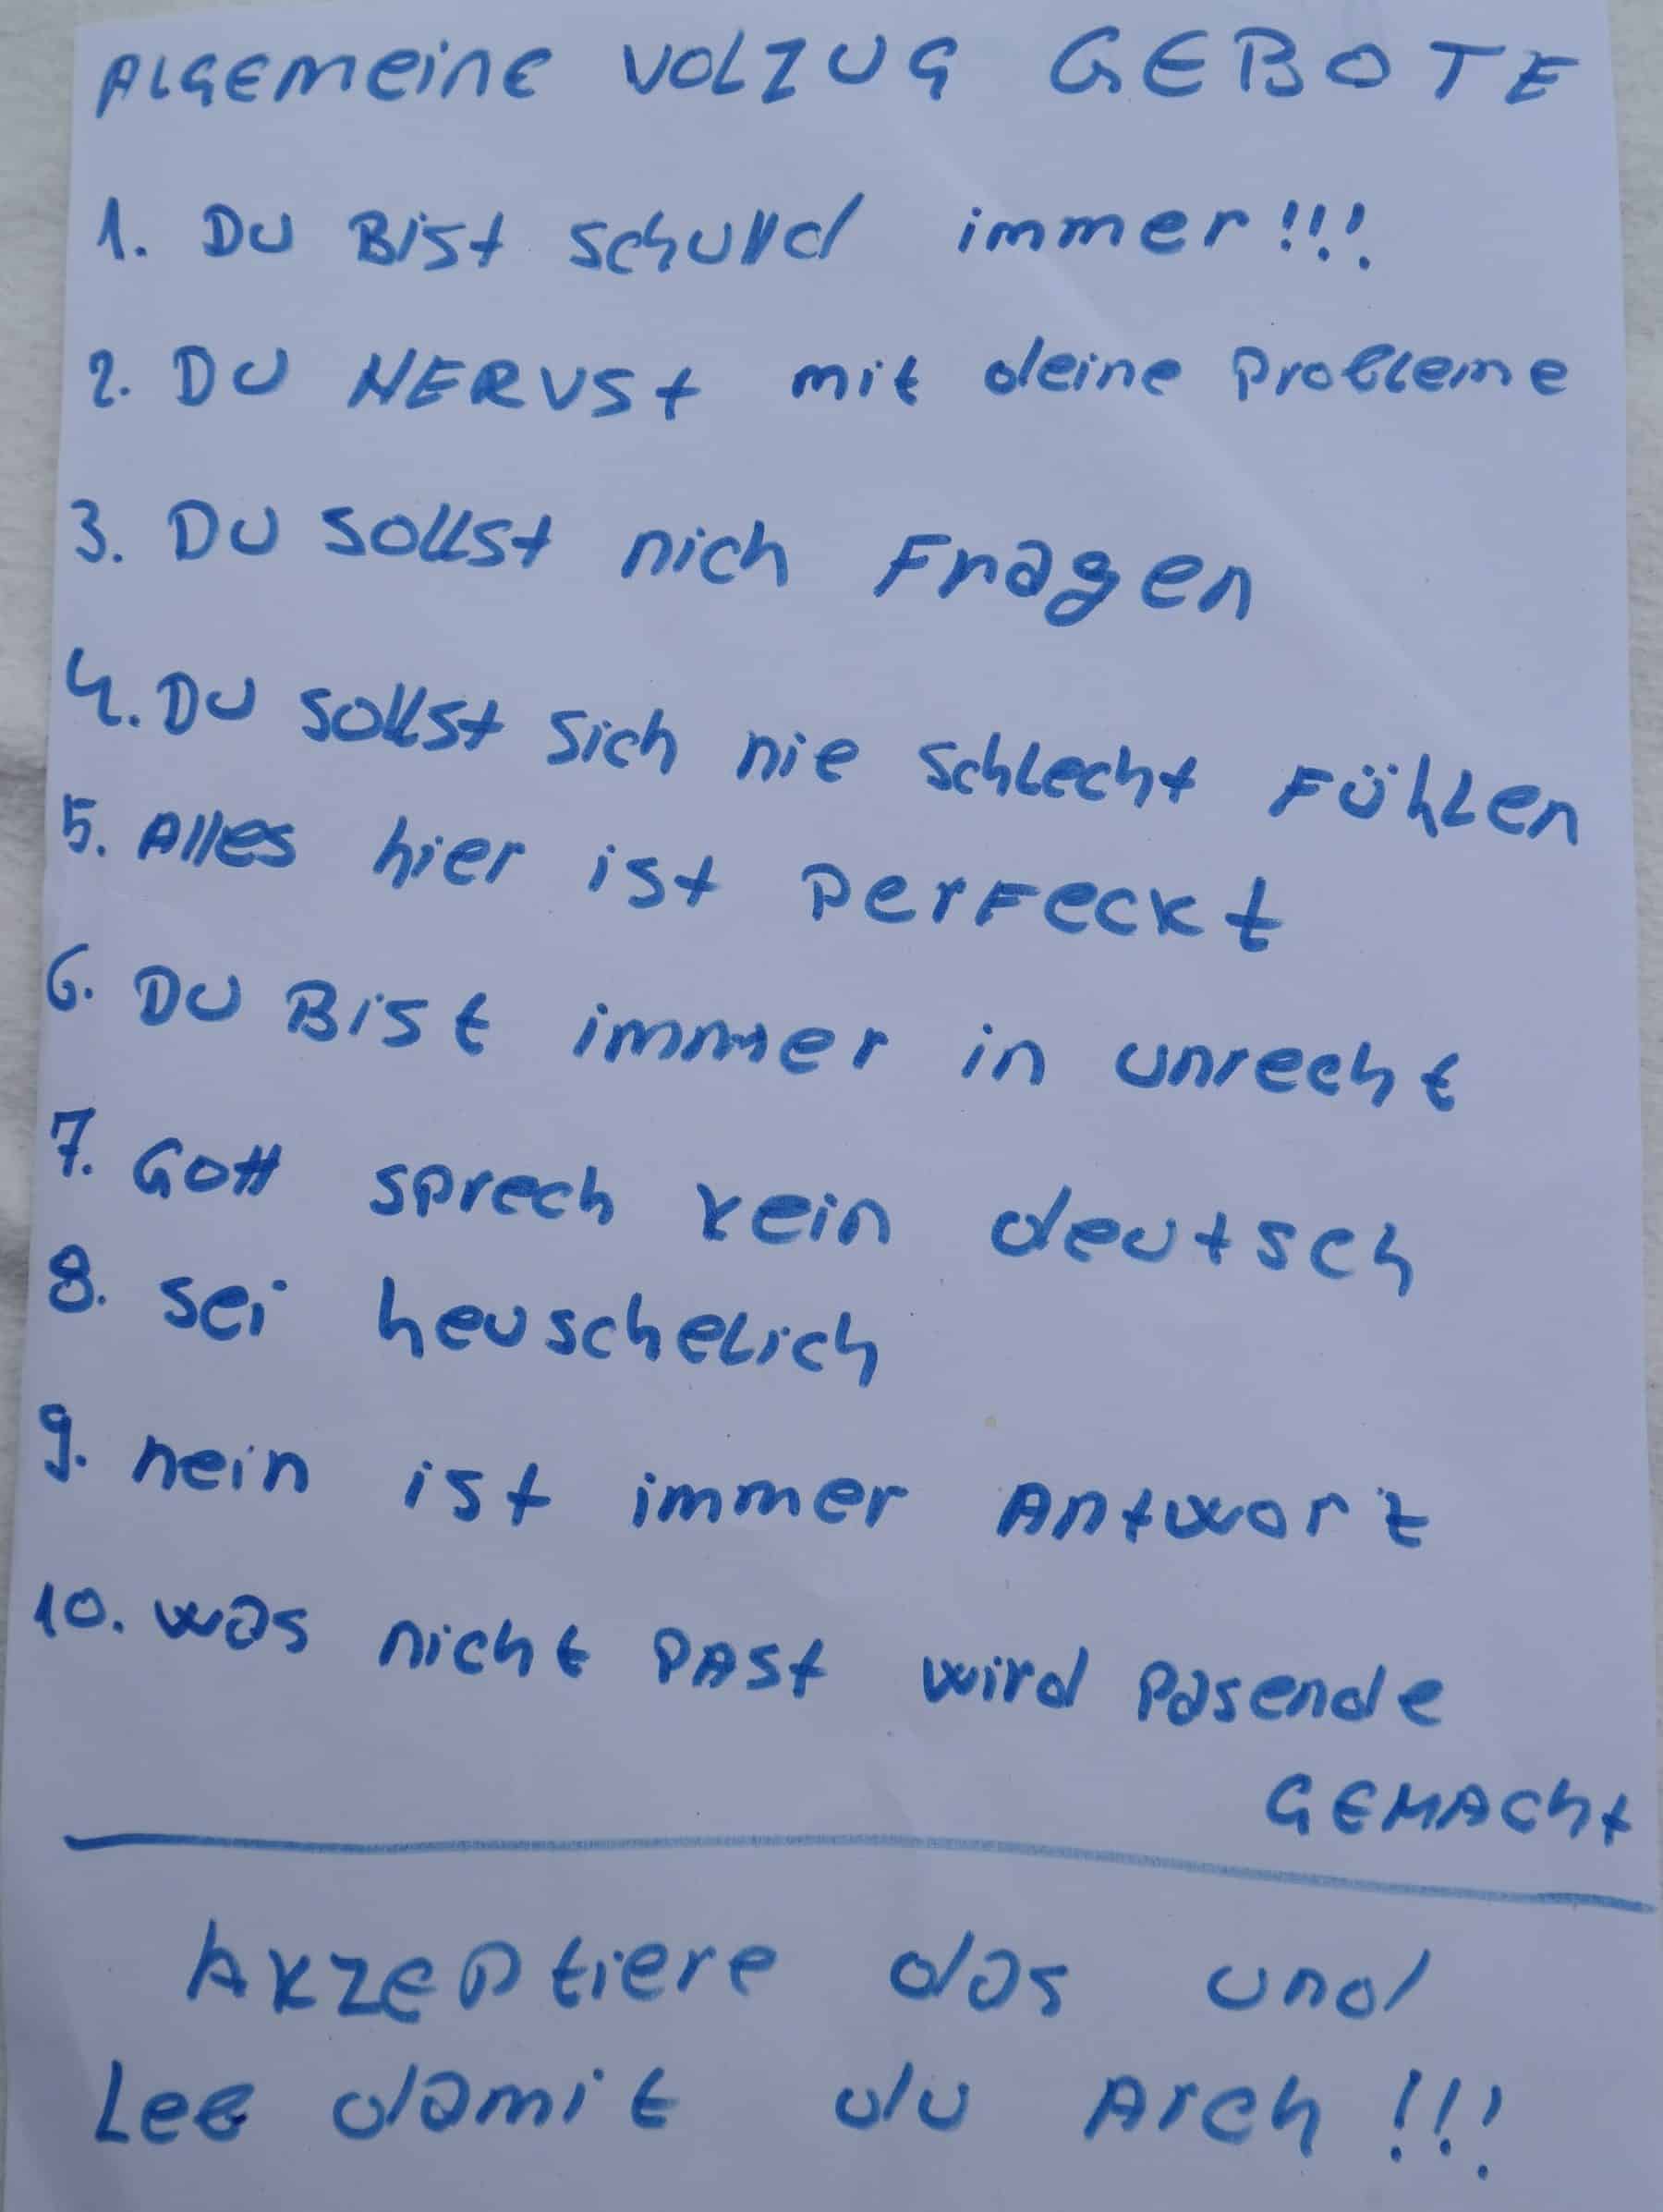 ALGEMEINE VOLZUG GEBOTE
1. DU BIST schulld immer!!!
2. DU NERVST mit deine Probleme
3. DU SOLLST nich Fragen
4. DU SOLLST Sich nie schlecht FÜHLEN
5. Alles hier ist PERFECKT
6. DU BIST immer in unrecht
7. GOTT sprech kein deutsch
8. sei heuschelich
9. nein ist immer Antwort
10. was nicht PAST wird Pasende
GEMACHT
AKZEPtiere das und
Leb damit du Arch!!!